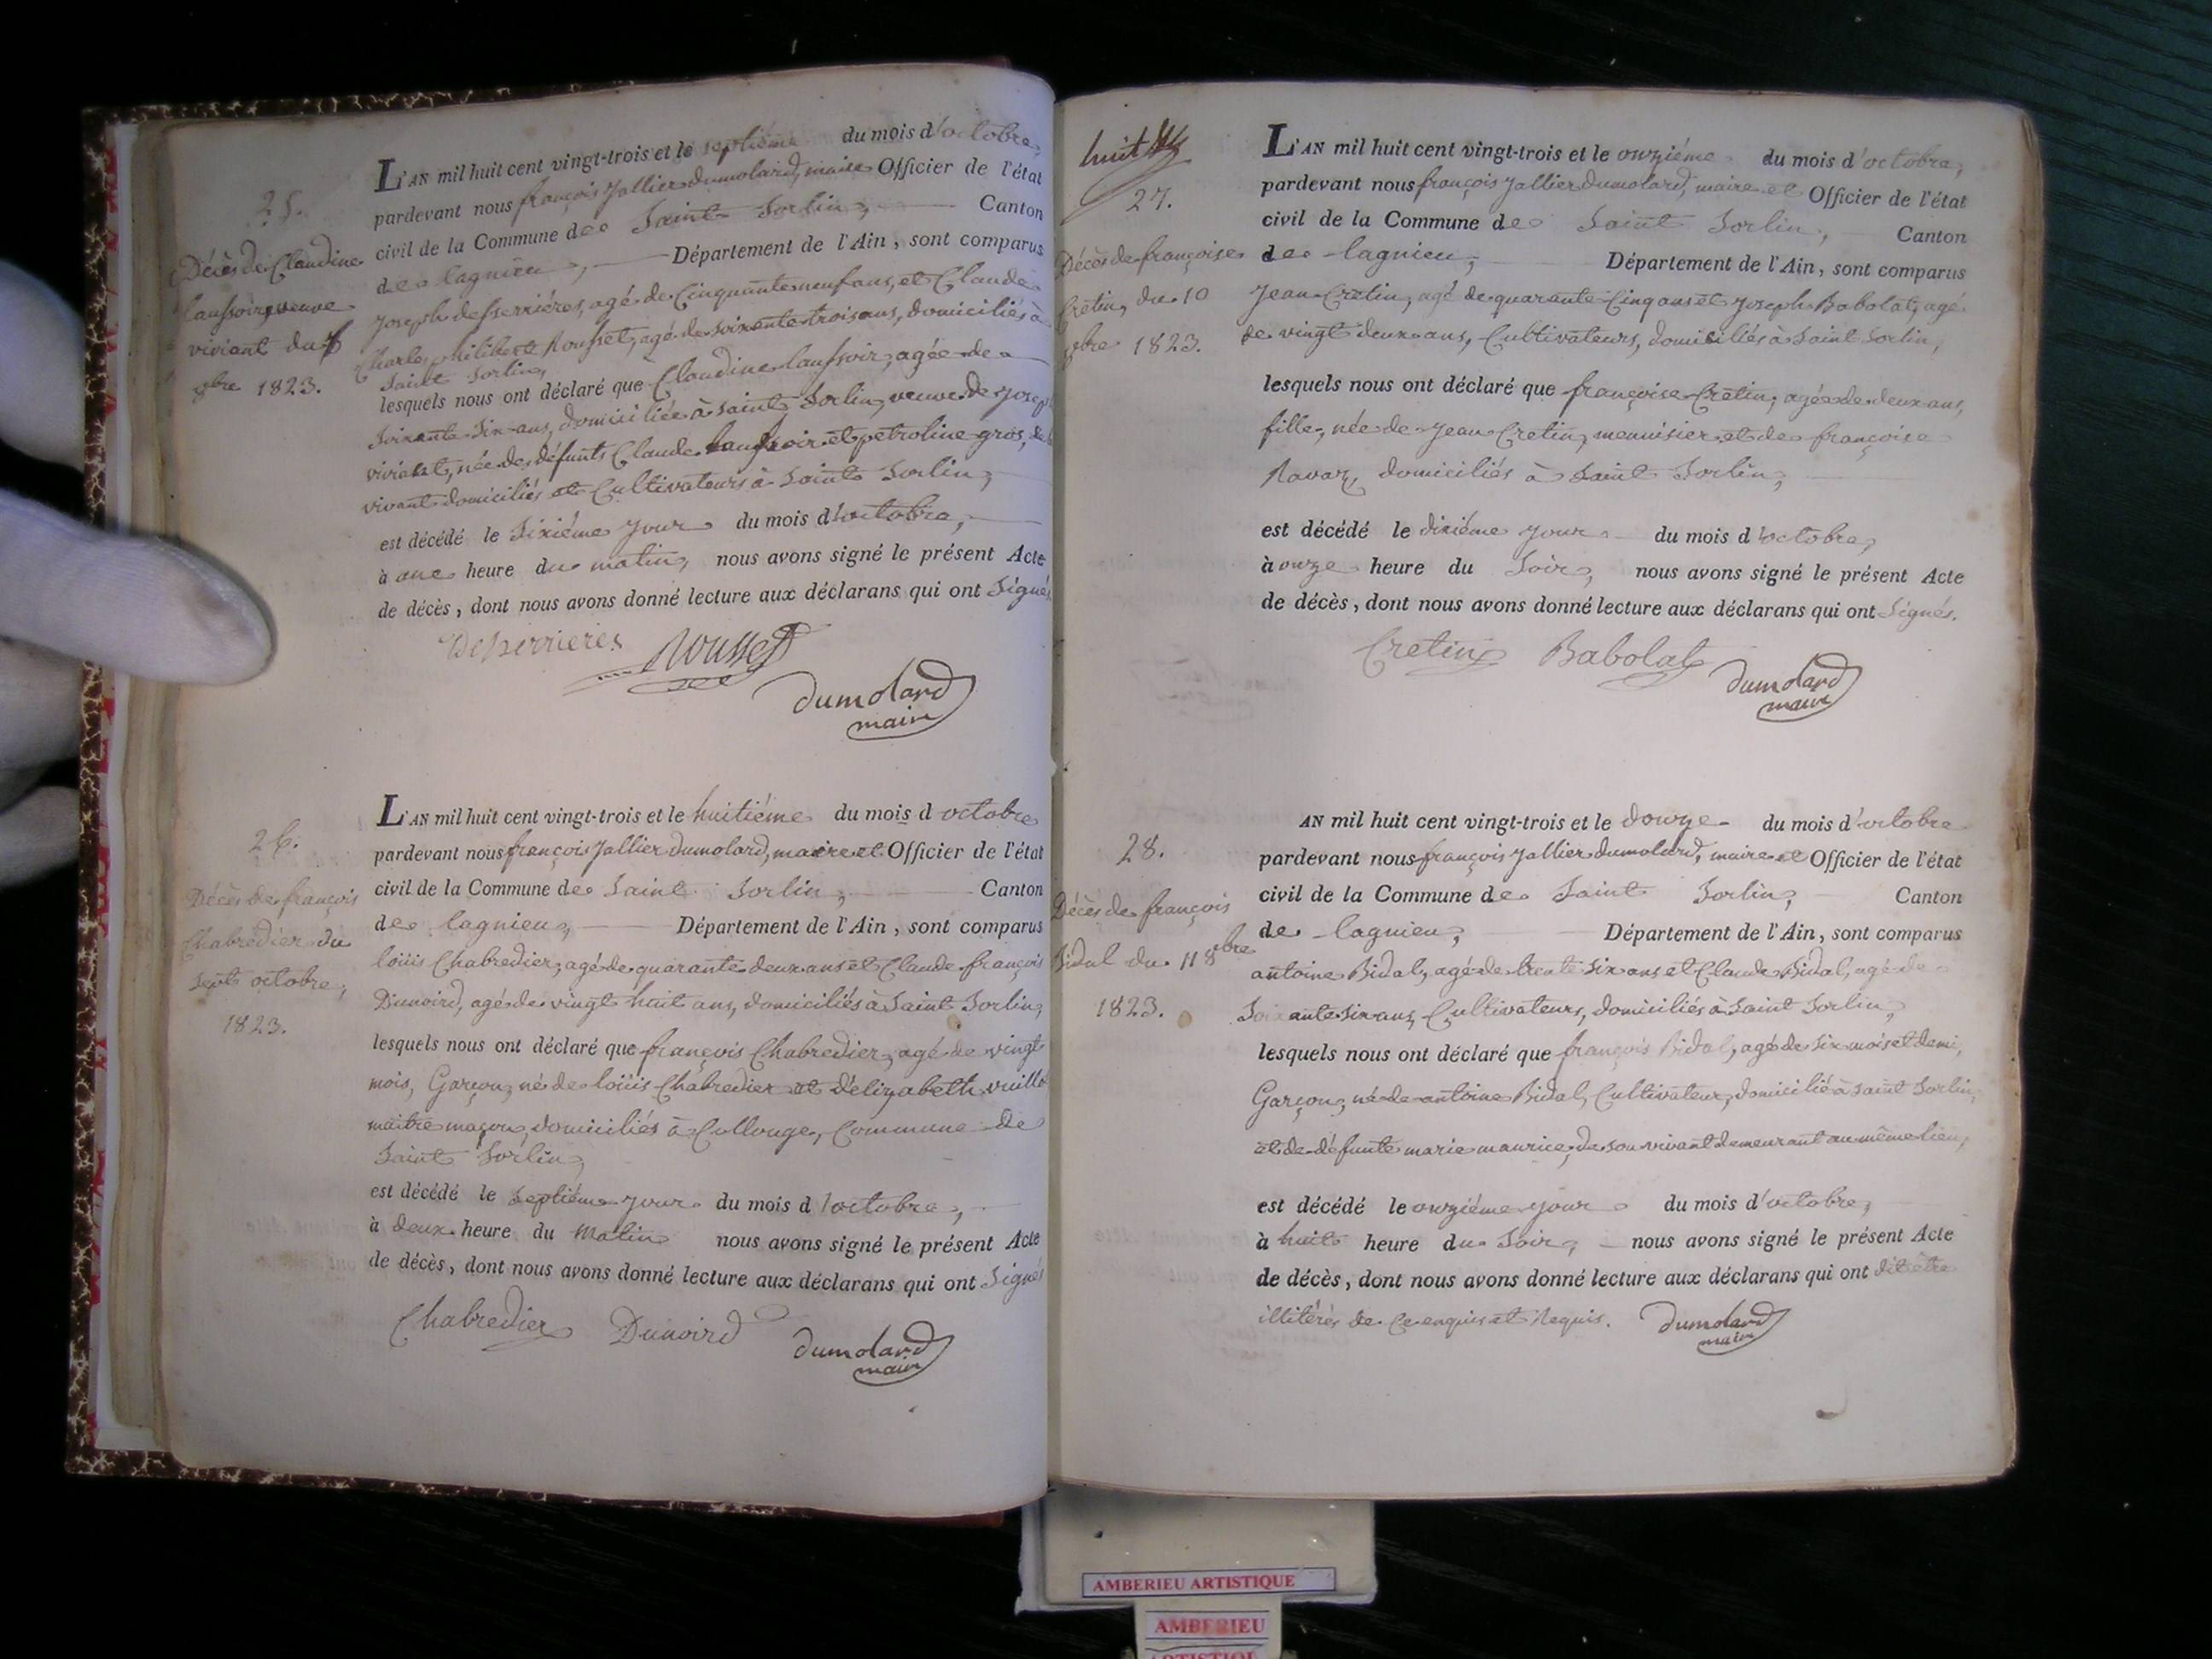 25.
Décès de Claudine
laussoir, veuve
viviant du 6
8bre 1823.
L'AN mil huit cent vingt-trois et le septiéme du mois d'octobre,
pardevant nous françois Jallier dumolard, maire Officier de l'état
civil de la Commune de Saint Sorlin, Canton
de lagnieu, Département de l'Ain, sont comparus
Joseph desserriéres, agé de Cinquante neuf ans, et Claude
Charles philibert Rousset, agé de soixante trois ans, domiciliés à
Saint Sorlin,
lesquels nous ont déclaré que Claudine laussoir, agée de
Soixante Six ans, domiciliée à Saint Sorlin, veuve de Joseph
viviant, née des défunts Claude laussoir et petroline gros, de
vivant domiciliés et Cultivateurs à Saint Sorlin,
est décédé le Sixiéme jour du mois d'octobre,
à une heure du matin, nous avons signé le présent Acte
de décès, dont nous avons donné lecture aux déclarans qui ont Signés
Desserrieres Rousset
dumolard
maire
26.
Décès de françois
Chabredier du
Sept octobre,
1823.
L'AN mil huit cent vingt-trois et le huitiéme du mois d octobre
pardevant nous françois Jallier dumolard, maire et Officier de l'état
civil de la Commune de Saint Sorlin, Canton
de lagnieu, Département de l'Ain, sont comparus
loüis Chabredier, agé de quarante deux ans et Claude françois
Dunoird, agé de vingt huit ans, domiciliés à Saint Sorlin,
lesquels nous ont déclaré que françois Chabredier, agé de vingt
mois, Garçon, né de loüis Chabredier et d'élizabeth
maitre maçon, domiciliés à Collonge, Commune de
Saint Sorlin,
est décédé le Septiéme jour du mois d'octobre,
à deux heure du Matin nous avons signé le présent Acte
de décès, dont nous avons donné lecture aux déclarans qui ont Signés
Chabredier Dunoird dumolard
maire
huit
27.
Décès de françoise
Cretin, du 10
8bre 1823.
L'AN mil huit cent vingt-trois et le onziéme du mois d'octobre,
pardevant nous françois Jallier dumolard, maire et Officier de l'état
civil de la Commune de Saint Sorlin, Canton
de lagnieu, Département de l'Ain, sont comparus
Jean Cretin, agé de quarante Cinq ans et Joseph Babolat, agé
de vingt deux ans, Cultivateurs, domiciliés à Saint Sorlin,
lesquels nous ont déclaré que françoise Cretin, agée de deux ans,
fille, née de Jean Cretin, menuisier et de françoise
Ravaz, domiciliés à Saint Sorlin,
est décédé le dixiéme jour du mois d'octobre,
à onze heure du Soir, nous avons signé le présent Acte
de décès, dont nous avons donné lecture aux déclarans qui ont Signés.
Cretin Babolat dumolard
maire
28.
Décès de françois
Bidal du 11 8bre
1823.
AN mil huit cent vingt-trois et le douze du mois d'octobre
pardevant nous françois Jallier dumolard, maire et Officier de l'état
civil de la Commune de Saint Sorlin, Canton
de lagnieu, Département de l'Ain, sont comparus
antoine Bidal, agé de trente Six ans et Claude Bidal, agé de
Soixante Six ans, Cultivateurs, domiciliés à Saint Sorlin,
lesquels nous ont déclaré que françois Bidal, agé de Six mois et demi,
Garçon, né de antoine Bidal, Cultivateur, domicilié à Saint Sorlin,
et de défunte marie maurice, de son vivant demeurant au même lieu,
est décédé le onziéme jour du mois d'octobre,
à huit heure du Soir, nous avons signé le présent Acte
de décès, dont nous avons donné lecture aux déclarans qui ont dit être
illitérés de Ce enquis et Requis. dumolard
maire
AMBERIEU ARTISTIQUE
AMBERIEU
ARTISTIQUE